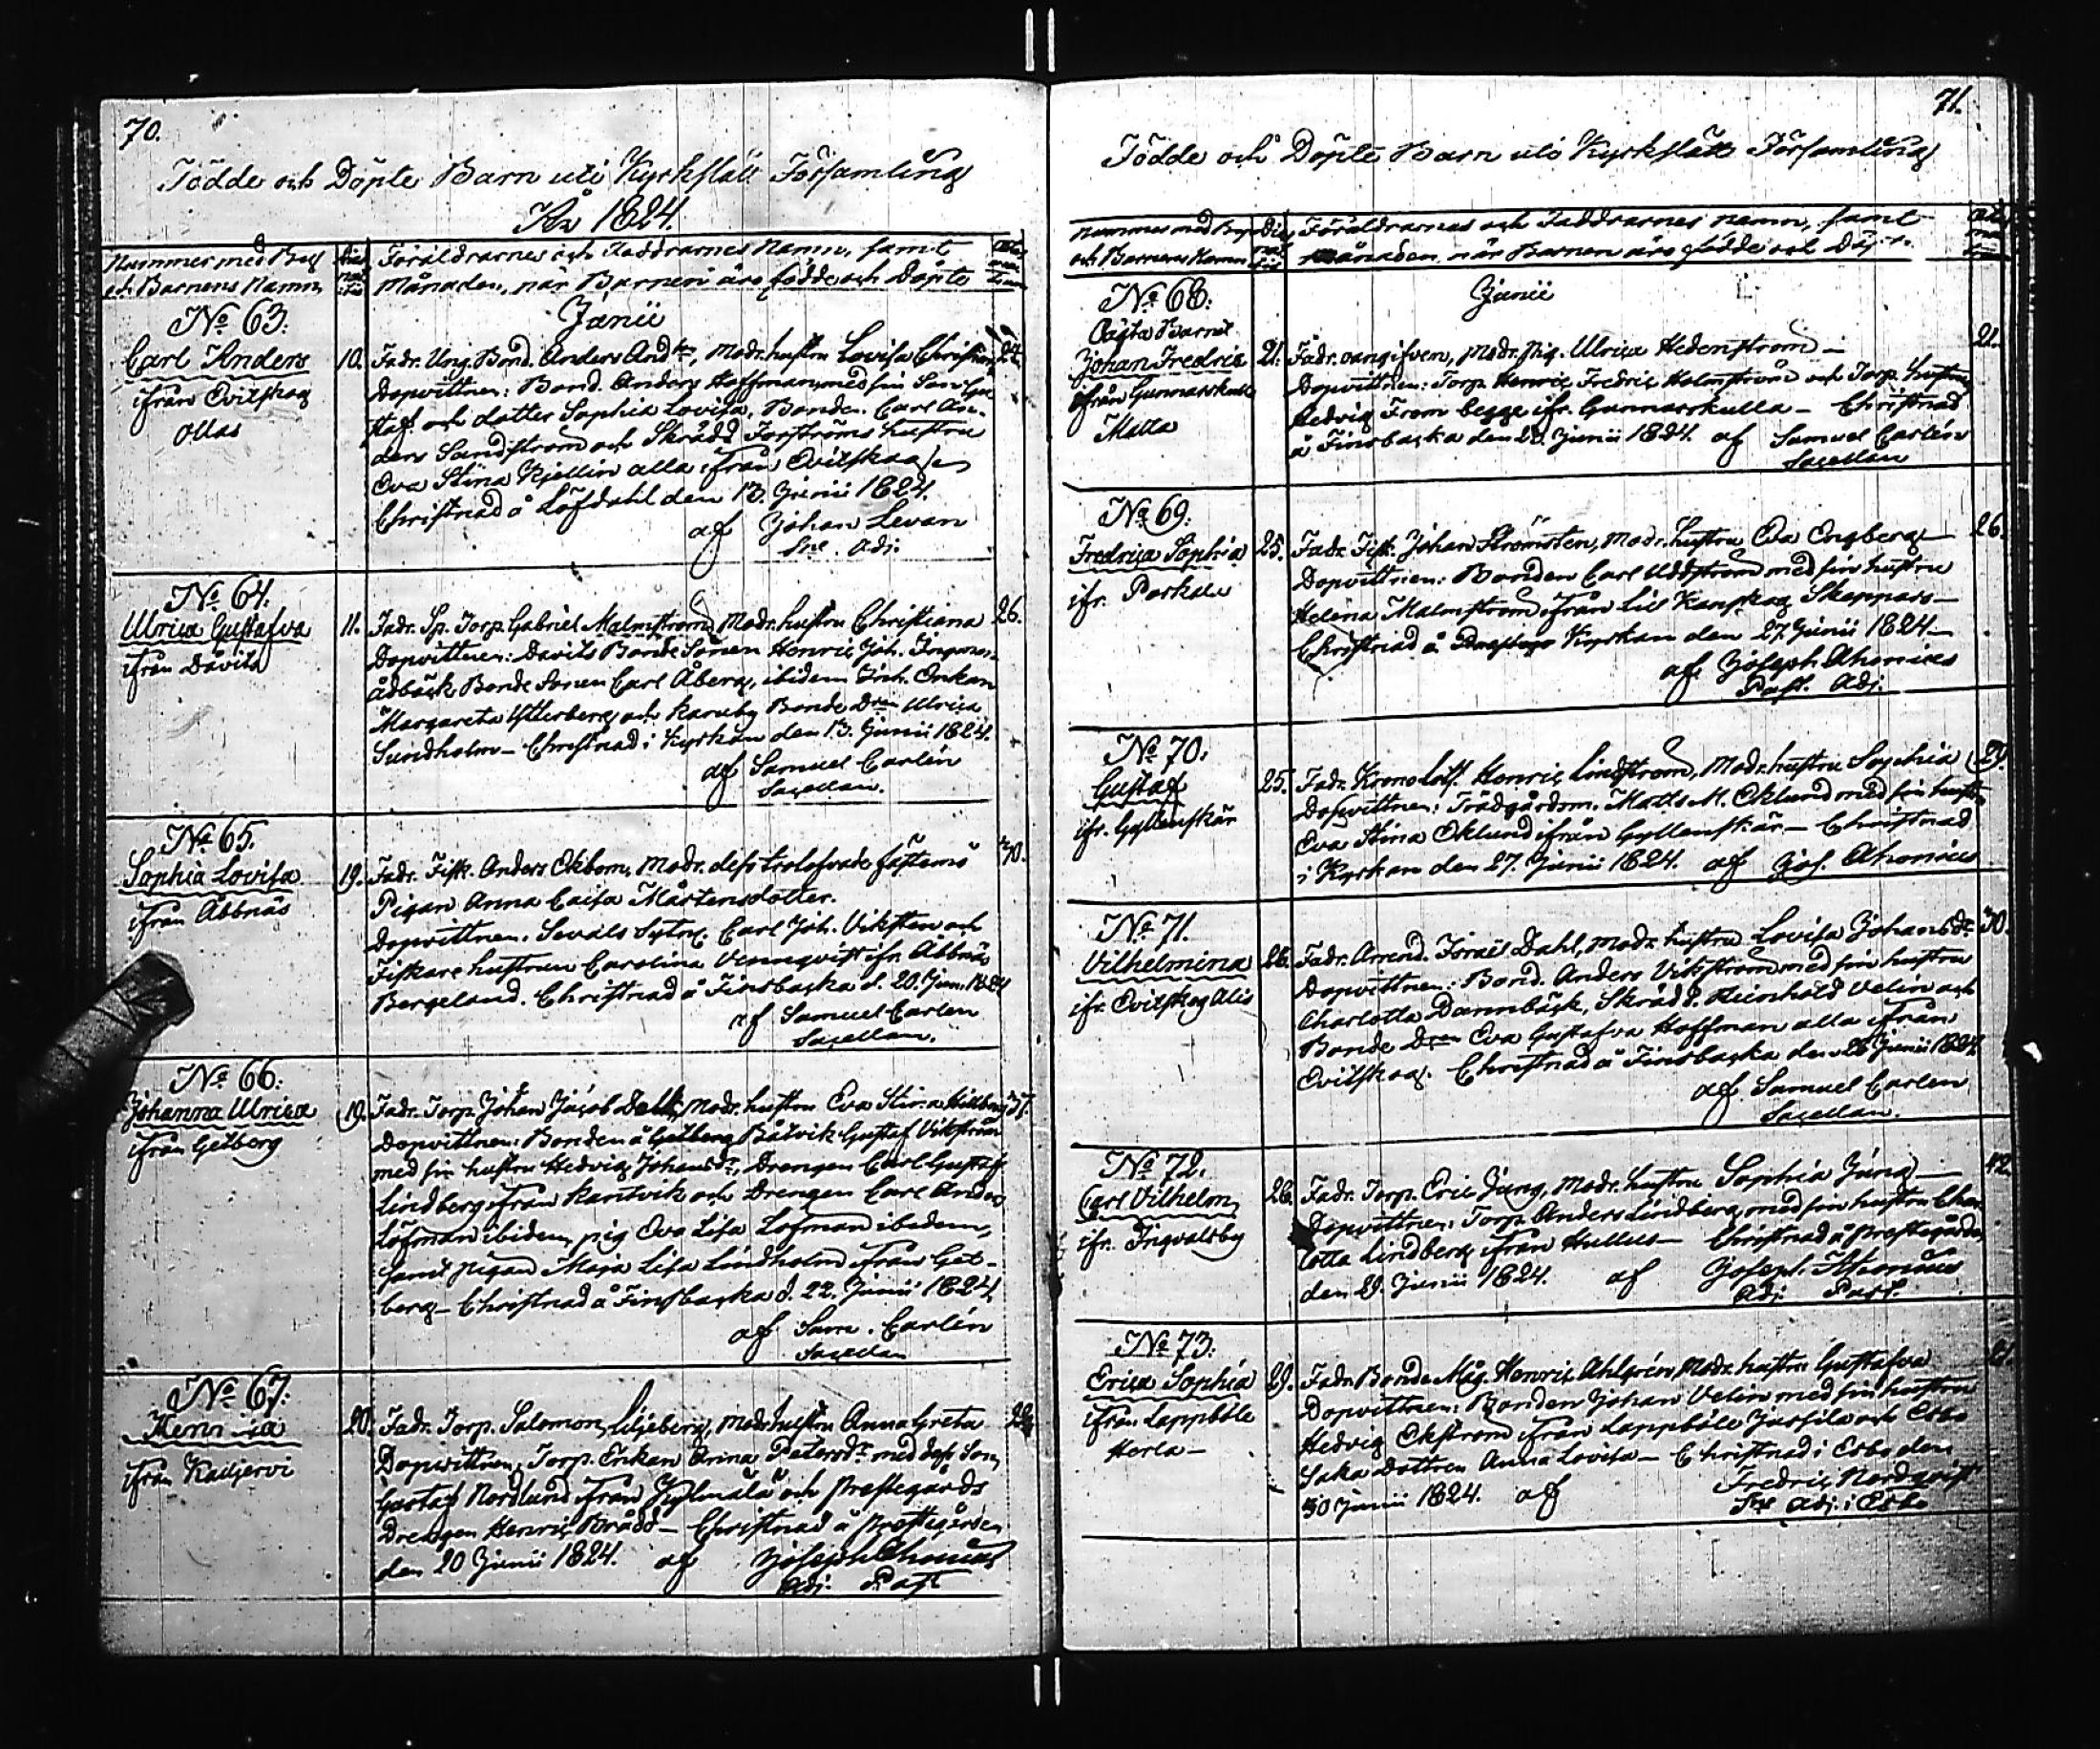 70.
Födde och Döpte Barn uti Kyrkslätt Församling
År 1824.
Nummer med Byn
och Barnens Namn
Föräldrarnes och Faddrarnes Namn, samt
Månaden, när Barnen äro födde och Döpte
Junii
No 63:
Carl Anders
ifrån Evitskog
Ollas
10.
Fadr. Ung. Bond. Anders And:son, Modr. hustru Lovisa Christian
27.
Dopvittnen: Bond. Anders Hoffman, med sin Son Gus-
taf och dotter Sophia Lovisa, Bonden Carl An-
ders Sandström och Skrädd Forströms hustru
Eva Stina Kjellin alla ifrån Evitskog
Christnad å Löfdahl den 13. Junii 1824.
af Johan Levan
Adj.
No 64.
Ulrica Gustafva
ifrån Dåvits
11.
Fadr. Sp. Torp. Gabriel Malmström Modr. hustru Christiana
26.
Dopvittnen: Davits Bonde Sonen Henric Joh.
ådbäck Bonde Sonen Carl Åberg, ibidem Enkan
Margareta Ytterberg och Karuby Bonde Dren Ulrica
Sundholm – Christnad i Kyrkan den 13. Junii 1824.
af Samuel Carlén
Sacellan.
No 65.
Sophia Lovisa
ifrån Åbbnäs
19.
Fadr. Fisk. Anders Ekbom, Modr. dess trolofvade fästemö
30.
Pigan Anna Caisa Mårtensdotter.
Dopvittnen. Seväls Sytng. Carl Joh. Viksten och
Fiskare hustrun Carolina Vennqvist ifr. Åbbnäs
Bergeland. Christnad å Finsbacka d. 20. Jun. 1824
af Samuel Carlen
Sacellan.
No 66:
Johanna Ulrica
ifrån Getberg
19.
Fadr. Torp. Johan Jacob Modr. hustru Eva Stina
37.
Dopvittnen: Bonden å Getberg Båtvik Gustaf Vikström
med sin hustru Hedvig Johansdr, Drengen Carl Gustaf
Lindberg ifrån Kantvik och Drengen Carl Anders
Löfman ibidem, pig Eva Lisa Löfman ibidem,
samt pigan Maja Lisa Lindholm ifrån Get-
berg – Christnad å Finsbacka d. 22. Junii 1824
af Sam. Carlén
Sacellan
No 67:
ifrån Kauljervi
20.
Fadr. Torp. Salomon Liljeberg, Modr hustru Anna Greta
Dopvittnen, Torp. Enkan Anna Petersdr med dess Son,
Gustaf Nordlund ifrån Kylmälä och prestegårds
Drengen Henric Brådd – Christnad å prestegården
den 20 Junii 1824. af Joseph Ahonius
Adj. Past
71.
Födde och Döpte Barn uti Kyrkslätt Församling
Nummer med Byn
och Barnens Namn
Föräldrarnes och Faddrarnes namn, samt
Månaden, när Barnen äro födde och Döpte
Junii
No 68:
Oägta Barnet
Johan Fredric
ifrån Gunnarskulla
Matta
21.
Fadr. oangifven, Modr. pig. Ulrica Hedenström –
21.
Dopvittnen: Torp Henric Fredric Holmström och Torp. hustru
Hedvig From begge ifr. Gunnarskulla – Christnad
å Finsbacka den Junii 1824. af Samuel Carlén
Sacellan
No 69:
Fredrica Sophia
ifr. Porkala
25.
Fadr. Fisk. Johan Strömsten, Modr. hustru Eva Engberg –
26.
Dopvittnen: Bonden Carl Uddström med sin hustru
Helena Malmström ifrån Lill Kanskog Skeppars –
Christnad å Kyrkan den 27. Junii 1824 –
af Joseph Ahonius
Past. Adj.
No 70:
Gustaf
ifr. Gyllenskär
25.
Fadr. Krono Lots. Henric Lindström, Modr. hustru Sophia
29.
Dopvittnen: Trädgårdsm. Matts M. Eklund med sin hustru
Eva Stina Eklund ifrån Gyllenskär – Christnad
i Kyrkan den 27. Junii 1824. af Jos. Ahonius
No 71.
Vilhelmina
ifr. Evitskog Alis
26.
Fadr. Arrend. Israel Dahl, Modr. hustru Lovisa Johansdr
30.
Dopvittnen: Bond. Anders Vikström med sin hustru
Charlotta Dannbäck, Skrädd. Reinhold Velin och
Bonde Dren Eva Gustafva Hoffman alla ifrån
Evitskog. Christnad å Finsbacka den 28 Junii 1824.
af Samuel Carlen
Sacellan.
No 72.
Carl Vilhelm
ifr. Ingvalsby
26.
Fadr. Torp. Eric Jung, Modr. hustru Sophia Jung –
42
Dopvittnen: Torp. Anders Lindberg med sin hustru Char
lotta Lindberg ifrån Hullus – Christnad å prestegården
den 29. Junii 1824. af Joseph Ahonius
Adj. Past.
No 73:
Erica Sophia
ifrån Lappböle
Herla –
29.
Fadr. Bonde Måg. Henric Ahlgrén, Modr. hustru Gustafva
Dopvittnen: Bonden Johan Velin med sin hustru
Hedvig Ekström ifrån Lappböle Jusfila och Esbo
Saka Dottren Anna Lovisa – Christnad i Esbo den
30 Junii 1824. af Fredric Nordqvist
Adj. i Esbo